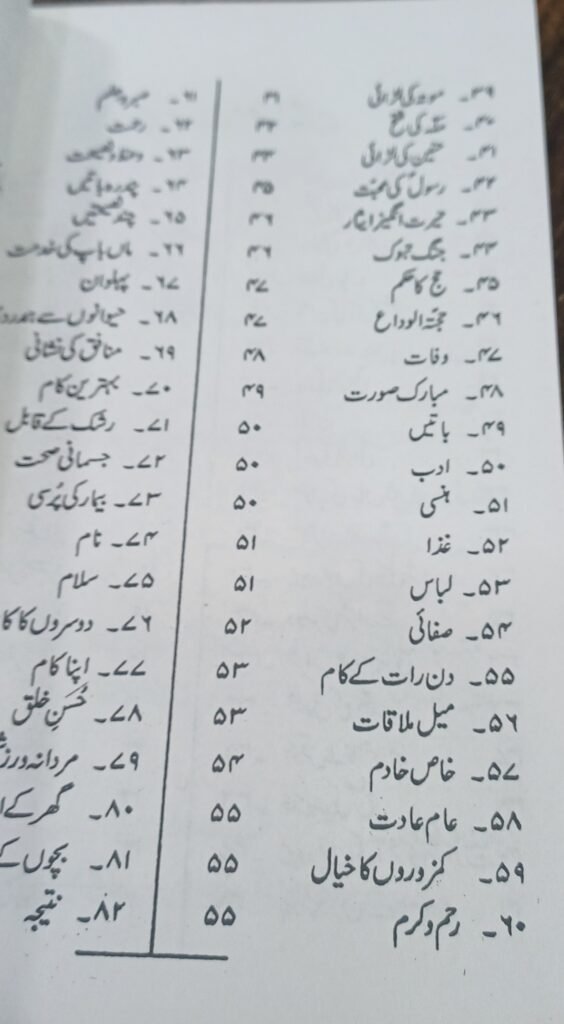 ۳۹۔ موتہ کی لڑائی ۳۱
۴۰۔ مکہ کی فتح ۳۲
۴۱۔ حنین کی لڑائی ۳۴
۴۲۔ رسول کی محبت ۳۵
۴۳۔ حیرت انگیز ایثار ۴۶
۴۴۔ جنگ تبوک ۴۶
۴۵۔ حج کا حکم ۴۷
۴۶۔ حجتہ الوداع ۴۷
۴۷۔ وفات ۴۸
۴۸۔ مبارک صورت ۴۹
۴۹۔ باتیں ۵۰
۵۰۔ ادب ۵۰
۵۱۔ ہنسی ۵۰
۵۲۔ غذا ۵۱
۵۳۔ لباس ۵۱
۵۴۔ صفائی ۵۲
۵۵۔ دن رات کے کام ۵۳
۵۶۔ میل ملاقات ۵۳
۵۷۔ خاص خادم ۵۴
۵۸۔ عام عادت ۵۵
۵۹۔ کمزوروں کا خیال ۵۵
۶۰۔ رحم و کرم ۵۵
۶۱۔ صبر و حلم
۶۲۔
۶۳۔ وعظ و نصیحت
۶۴۔ چندہ باتیں
۶۵۔ چند نصیحتیں
۶۶۔ ماں باپ کی خدمت
۶۷۔ پہلوان
۶۸۔ حیوانوں سے ہمدرد
۶۹۔ منافق کی نشانی
۷۰۔ بہترین کام
۷۱۔ رشک کے قابل
۷۲۔ جسمانی صحت
۷۳۔ بیمار کی پُرسی
۷۴۔ نام
۷۵۔ سلام
۷۶۔ دوسروں کا کا
۷۷۔ اپنا کام
۷۸۔ حُسنِ خلق
۷۹۔ مردانہ ورز
۸۰۔ گھر کے
۸۱۔ بچوں کے
۸۲۔ نتیجہ